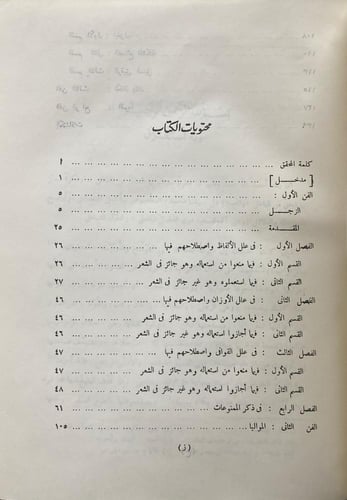 محتويات الكتاب
كلمة المحقق ... ا
[ مدخل ] ... ١
الفن الأول : ... ٥
الزجل ... ٥
المقدمة ... ٢٥
الفصل الأول : فى علل الألفاظ واصطلاحهم فيها ... ٢٦
القسم الأول : فيما منعوا من استعماله وهو جائز فى الشعر ... ٢٦
القسم الثانى : فيما استعملوه وهو غير جائز فى الشعر ... ٢٧
الفصل الثانى : فى علل الأوزان واصطلاحهم فيها ... ٤٦
القسم الأول : فيما منعوا من استعماله وهو جائز فى الشعر ... ٤٦
القسم الثانى : فيما أجازوا استعماله وهو غير جائز فى الشعر ... ٤٦
الفصل الثالث : فى علل القوافى واصطلاحهم فيها ... ٤٧
القسم الأول : فيما منعوا من استعماله وهو جائز فى الشعر ... ٤٧
القسم الثانى : فيما أجازوا استعماله وهو غير جائز فى الشعر ... ٤٨
الفصل الرابع : فى ذكر الممنوعات ... ٦١
الفن الثانى : المواليا ... ١٠٥
( ز )